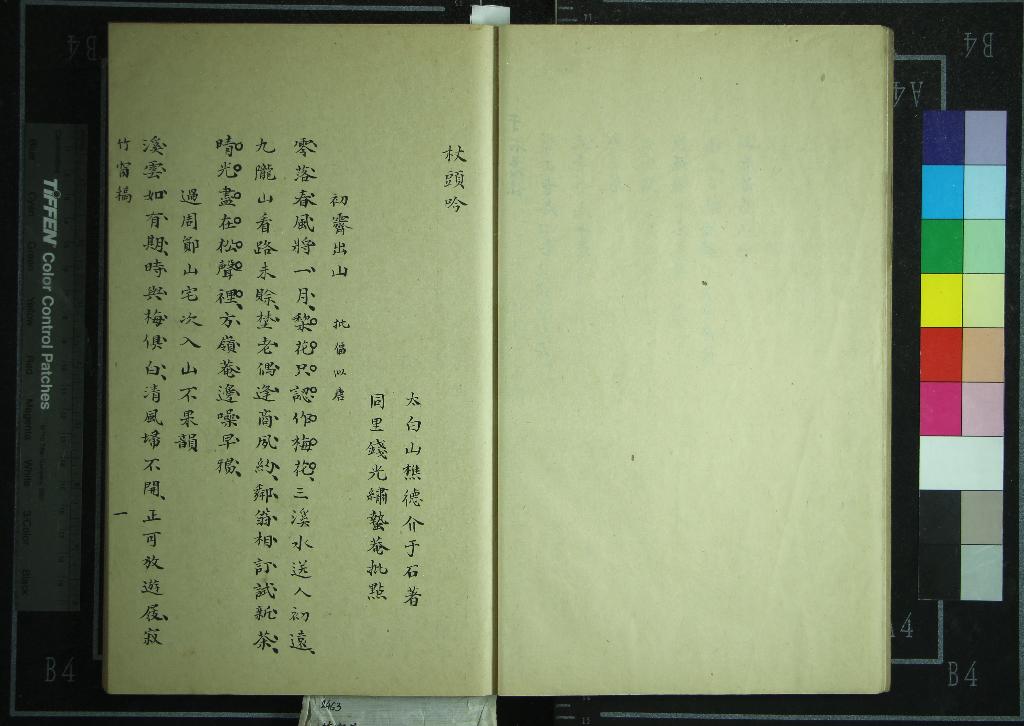 杖頭吟
太白山樵德介于石著
同里錢光繡蟄菴批點
初霽出山 批偪似唐
零落春風將一月黎花只認作梅花三溪水送人初遠
九隴山看路未賒埜老偶逢商夙約鄰翁相訂試新茶
晴光盡在松聲裡方嶺菴邊噪早鴉
過周鄮山宅次入山不果韻
溪雲如有期時與梅俱白清風埽不開正可放遊屐寂
竹窗稿 一
B4
B4
B4
B4
A4
TIFFEN Color Control Patches
2463